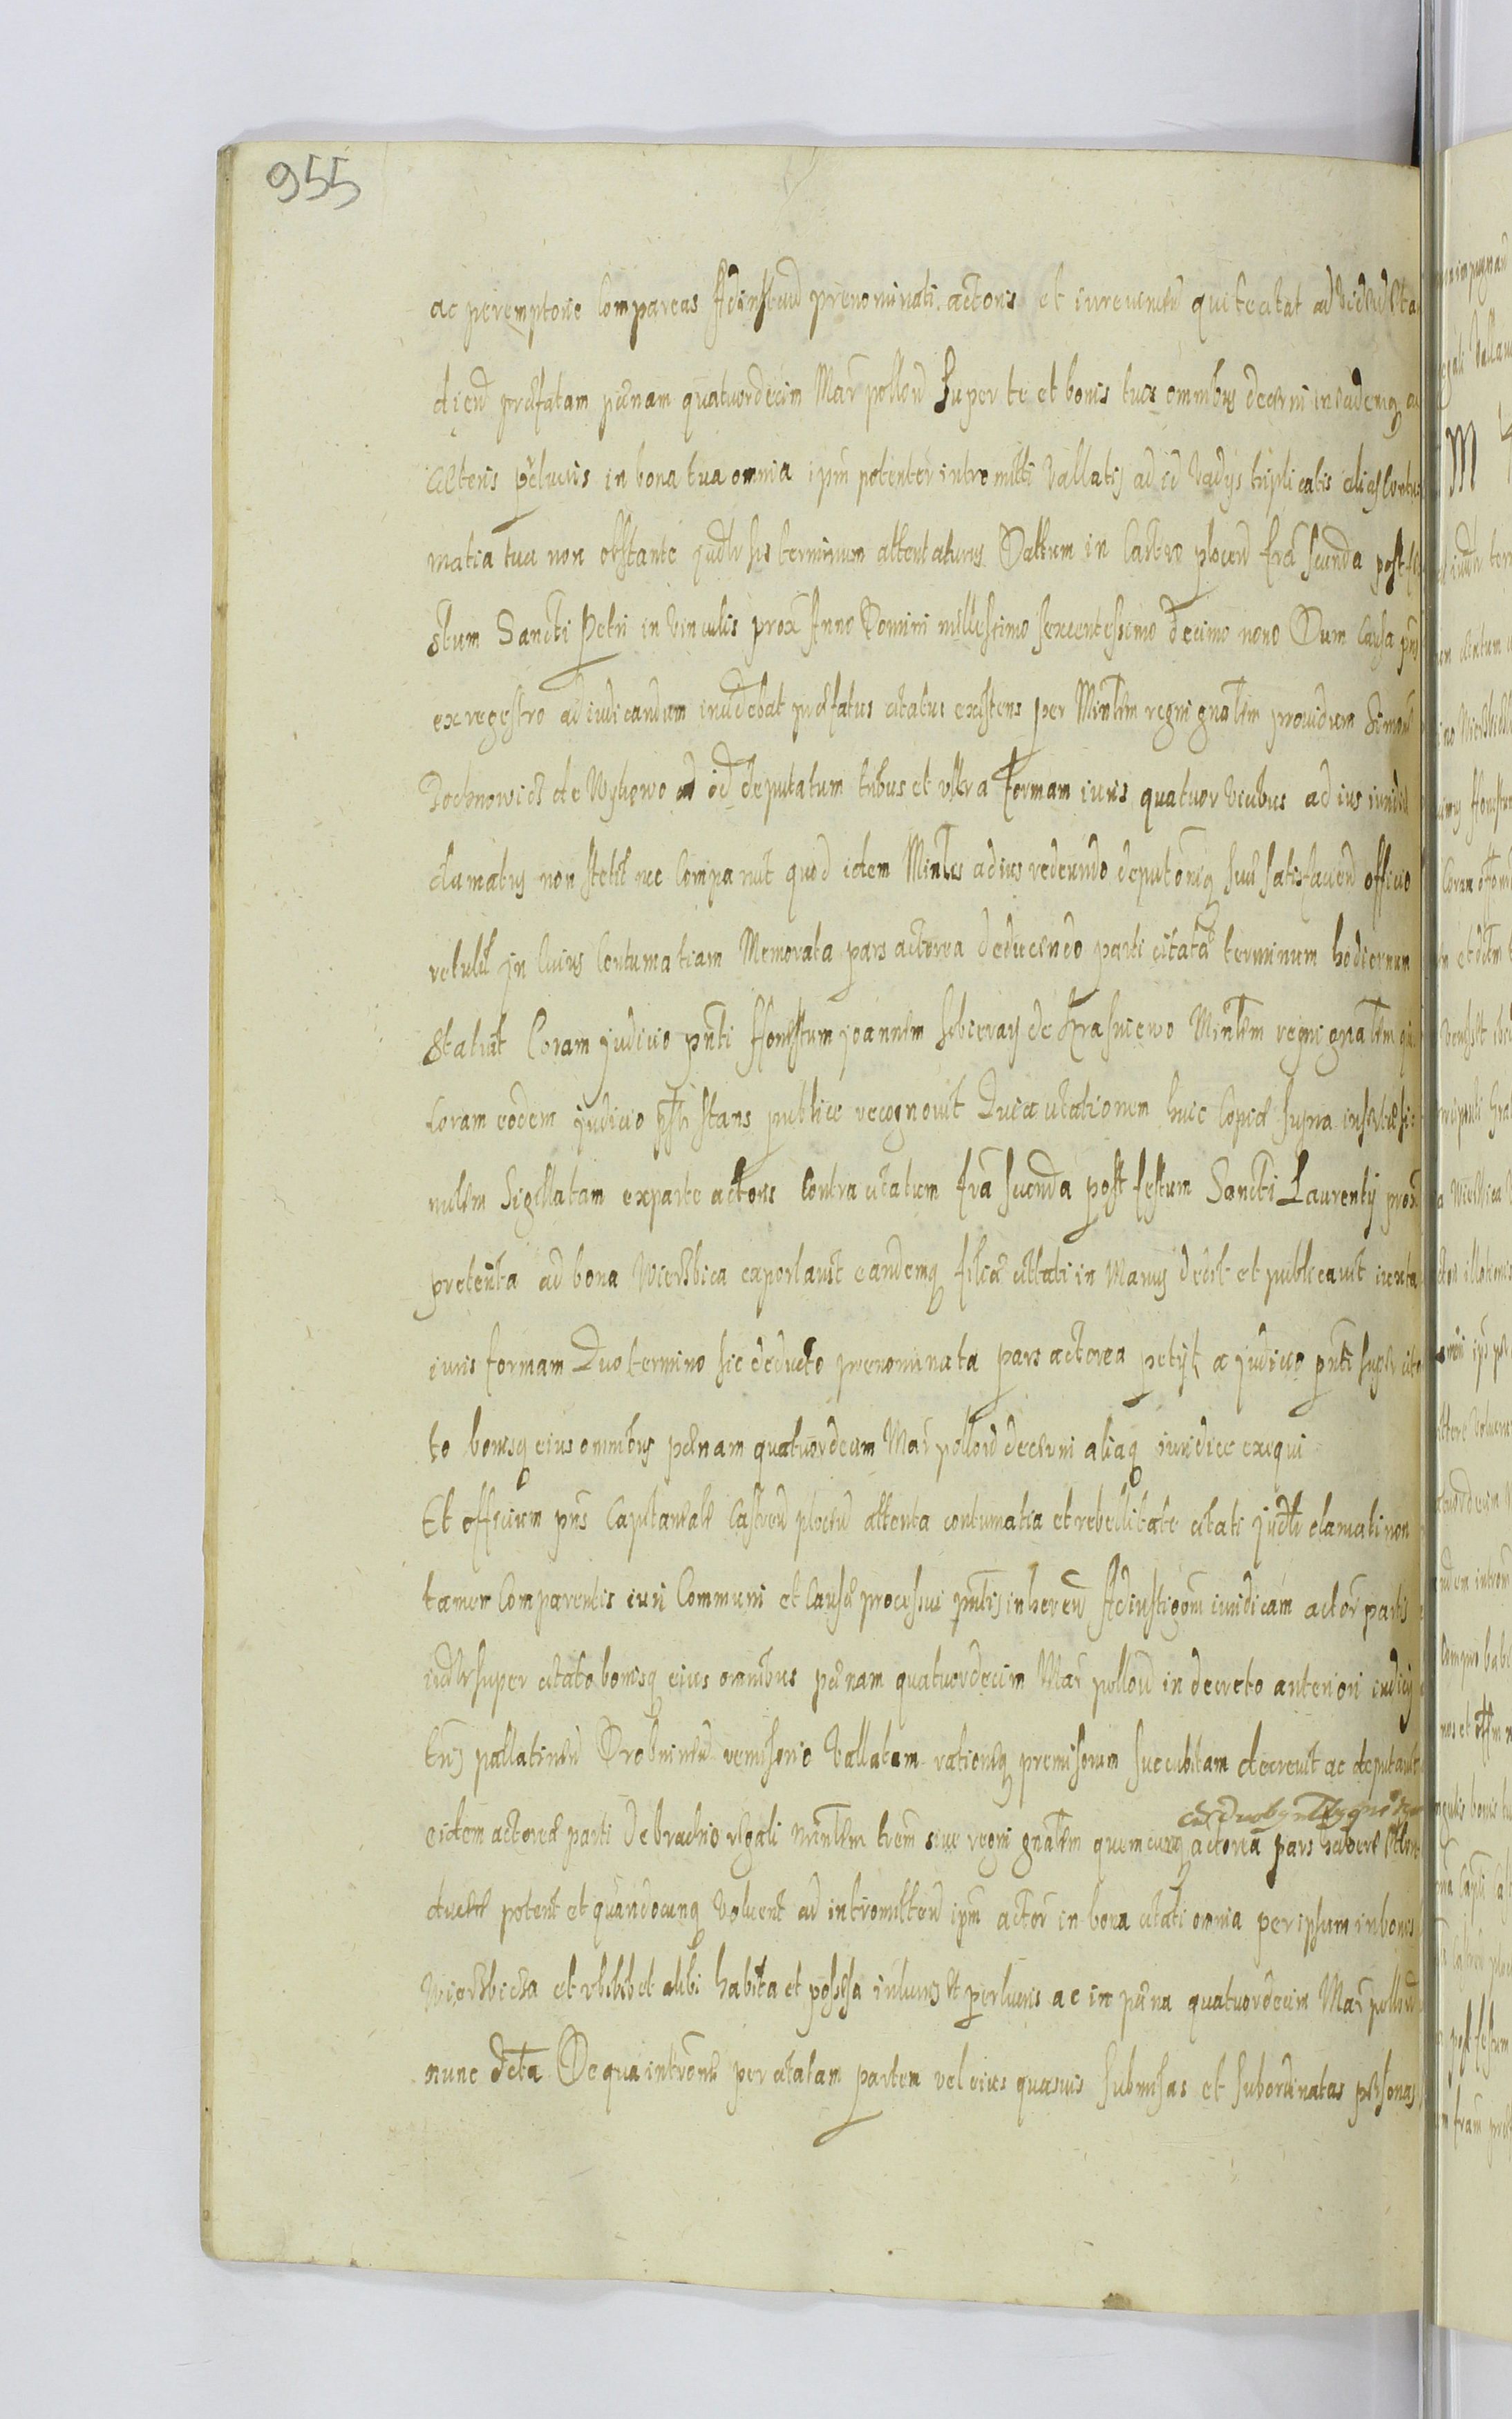 955
ac peremptorie Compareas Ad instand prenominati actoris et
diend præfatam pænam quatuordecim Mar pollond super te et bonis tuis omnibus decerni in eademq
cæteris p lucris in bona tua omnia ipm potenter intromitti Vallatis ad id Vadys triplicatis
matia tua non obstante judtr sis terminum attentaturus Dattum in Castro plocen fra scunda post fe
stum Sancti Petri in Vinculis prox Anno Domini millesimo sexcentesimo decimo nono Dum Causa pns
ex regestro ad iudicandum incidebat præfatus citatus existens per Mintlem regni gnalem prouidum Simon
de Wylzewo ad id deputatum tribus et vltra formam iuris quatuor vicibus ad ius
clamatus non stetit nec Comparuit quod idem Minlis ad ius redeundo deputoniq suæ satisfaciend officio
retulit in Cuius Contumatiam Memorata pars actorea deducendo parti citatæ terminum hodiernum
Statuit Coram judicio pnti Honestum joannem de Krasniewo Mintlem regni gnalem qui
Coram eodem judicio stans publice recognouit Quia citationem huic Copiæ supra insertæ si
milem Sigillatam ex parte actoris Contra citatum fra scunda post festum Sancti Laurenty prox
preterita ad bona Wierzbica exportauit eandemq filiæ cittati in Manus dedit et publicauit iuxta
iuris formam Quo termino sic deducto prenominata pars actorea petijt a judicio pnti super cita
to bonisq eius omnibus pænam quatuordecim Mar pollond decerni aliaq iuridice exequi
Et officium pns Capitaneale Castren plocen attenta contumatia et rebellitate citati judtr clamati non
tamen Comparentis iuri Communi et Causæ processui pntis inheren Ad instigoni iuridicam actor partis
super citato bonisq eius omnibus pænam quatuordecim Mar pollond in decreto anteriori
pallatinen Drobninen remissorio Vallatam rationeq premissorum succubitam decreuit ac deputauit
cu duobg nobilibg
eidem actoreæ parti De brachio regali Mintlem trem siue regni gnalem quemcunq actorea pars habere
ducere poterit et quandocunq Voluerit ad intromittend ipm actor in bona citati omnia per ipsum in bonis
Wierzbicza et vbilibet alibi habita et possessa in lucris et perlucris ac in pæna quatuordecim Mar pollond
nunc dcta De qua per citatam partem vel eius quasuis submissas et subordinatas personas